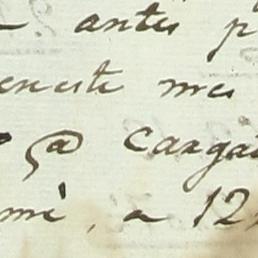 antes p
eneste mes
@ carga
mè, a 12